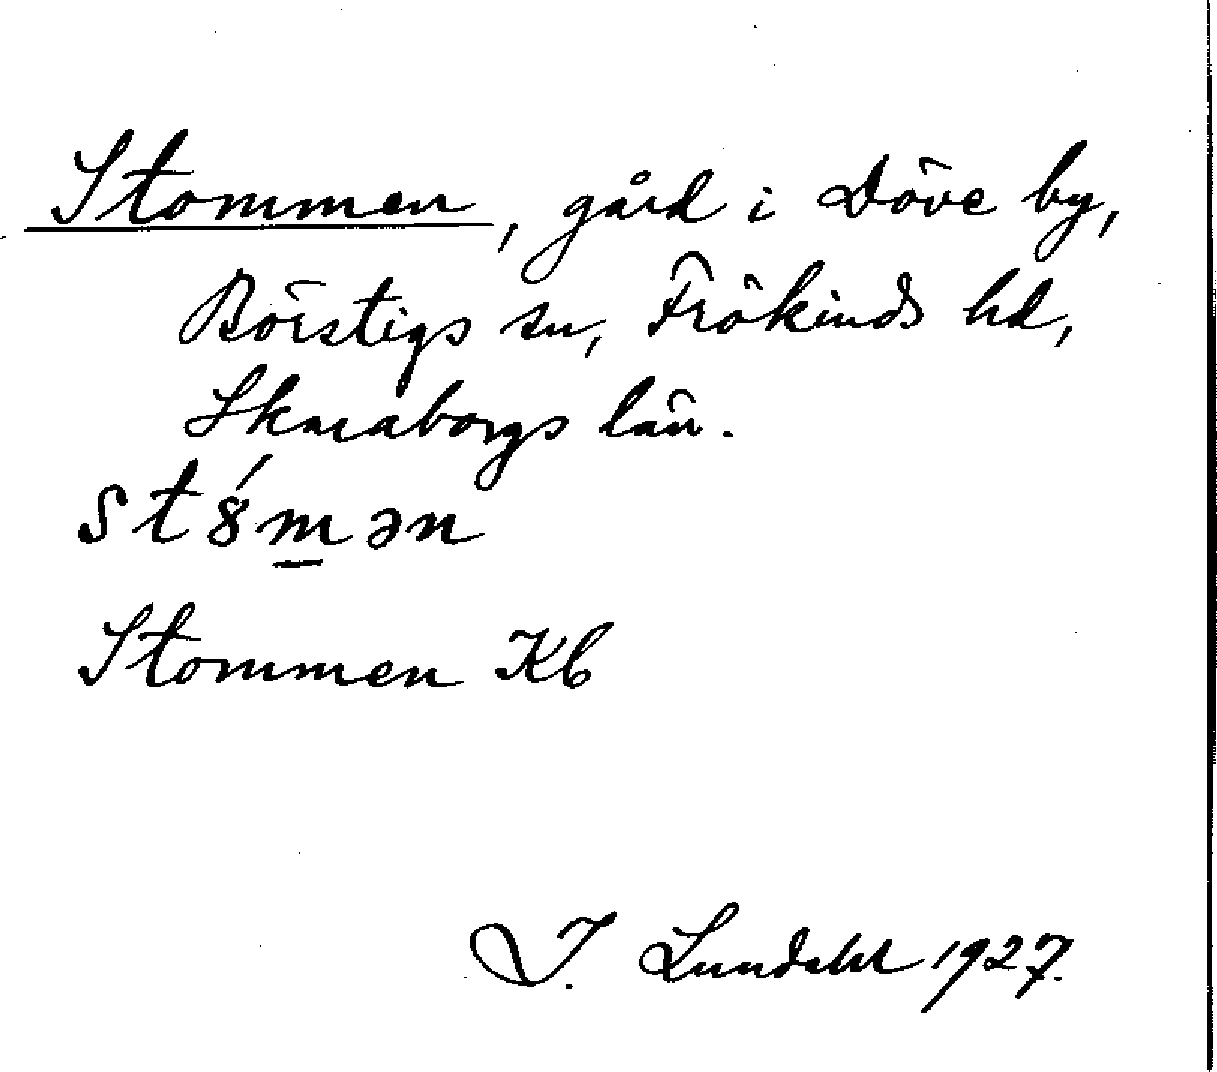 Stommen, gård i Döve by,
Börstigs sn, Frökinds hd,
Skaraborgs län.
st8́m̲ən
Stommen Kb
J. Lundahl 1927.